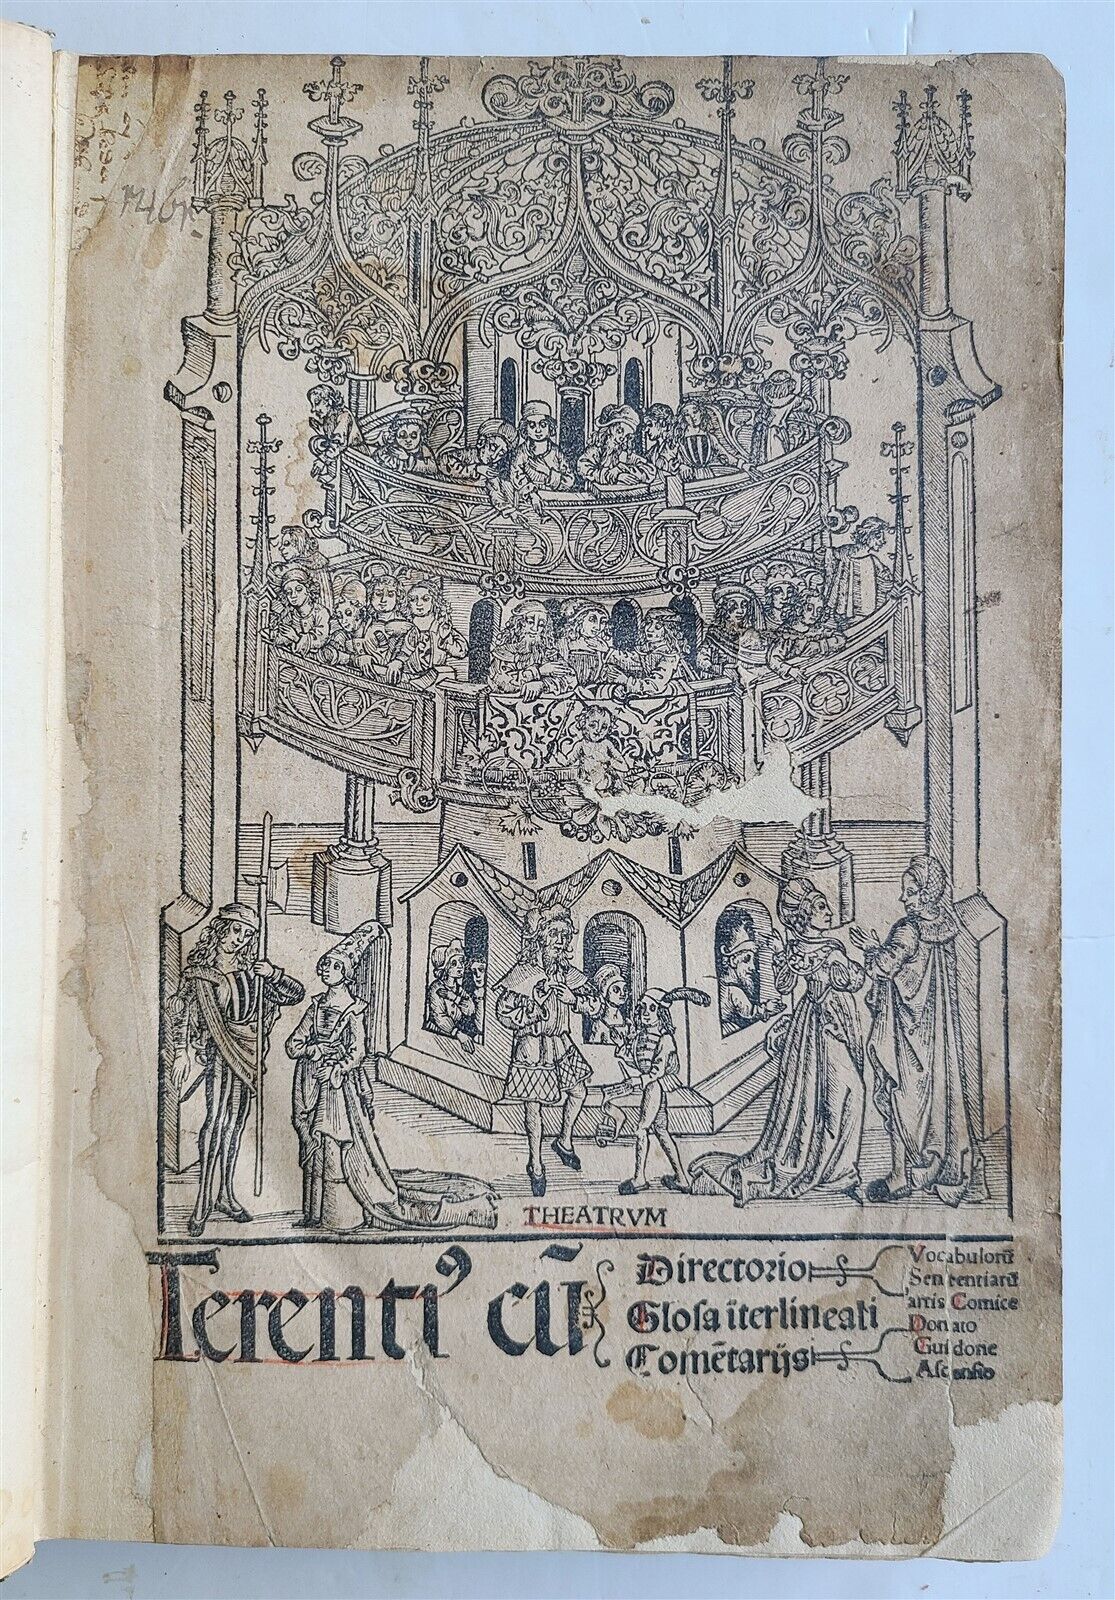 THEATRVM
Terentiꝰ cū
Directorio
Glosa īterlineati
Comētarijs
Vocabulorū
Sententiarū
artis Comice
Donato
Guidone
Ascensio